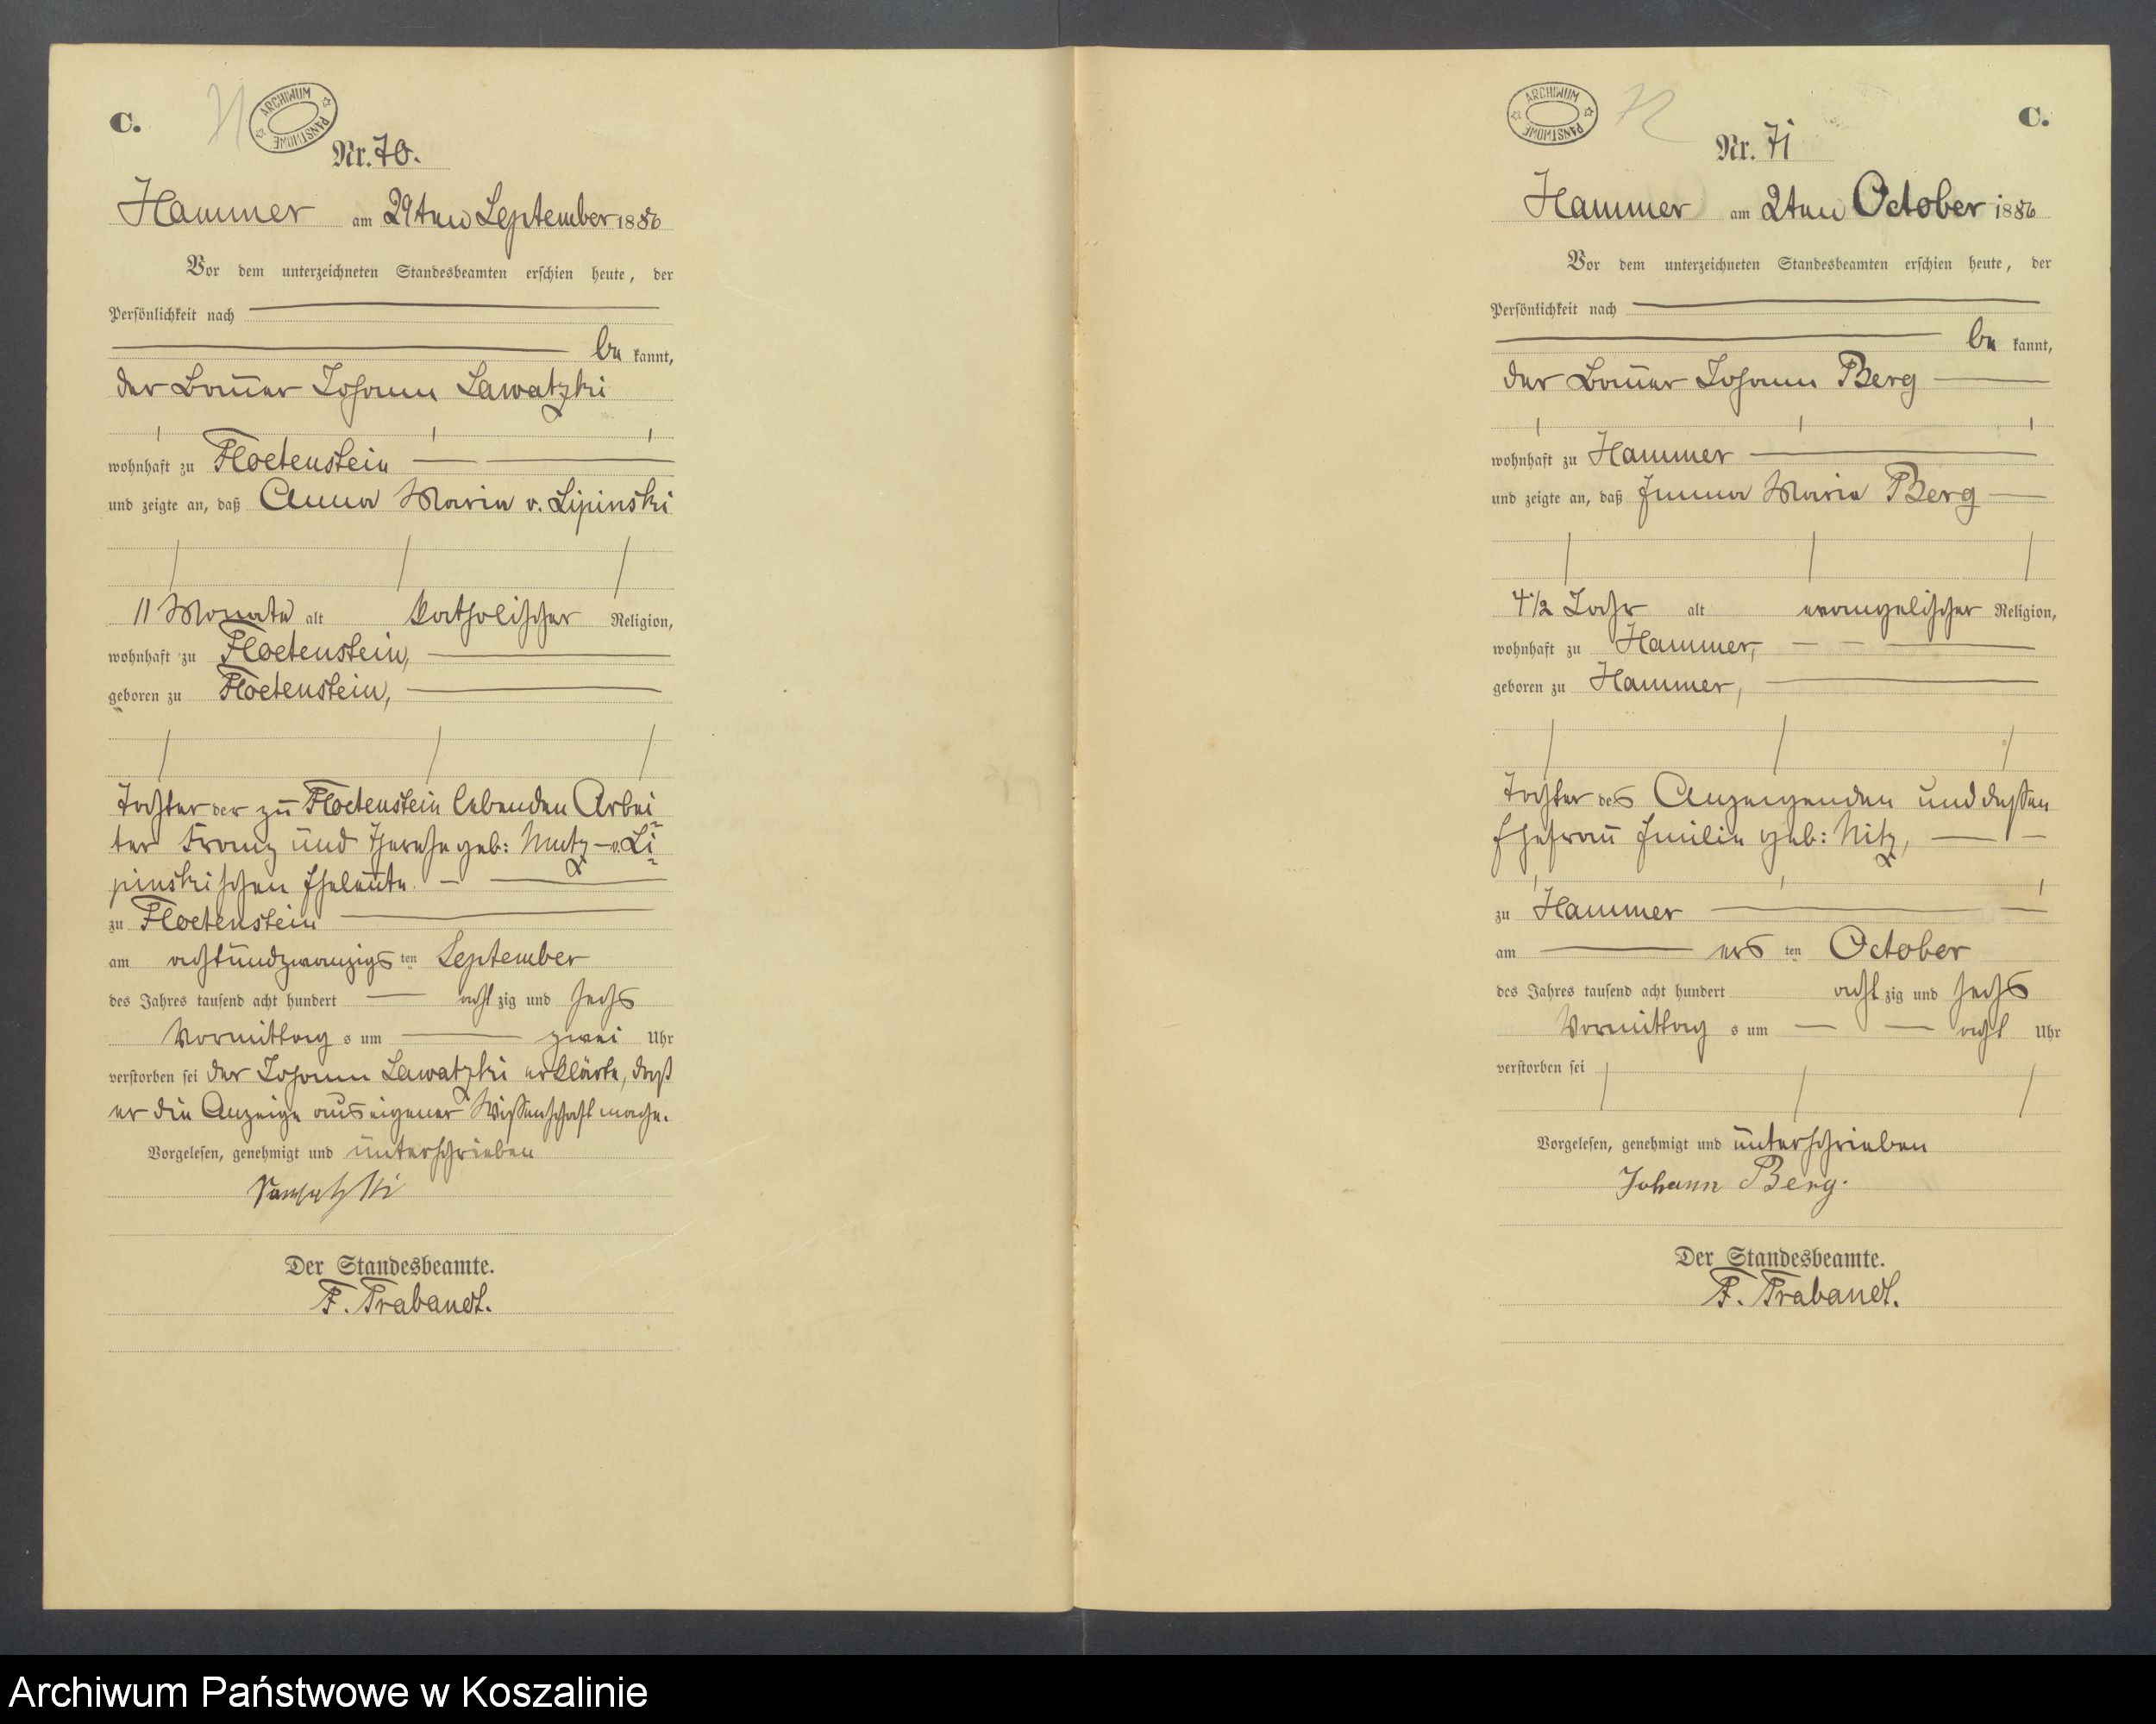 C.
71
ARCHIWUM PAŃSTWOWE
Nr. 70.
Hammer am 29ten September 1886
Vor dem unterzeichneten Standesbeamten erschien heute, der
Persönlichkeit nach
be kannt,
der Bauer Johann Lawatzki
wohnhaft zu Floetenstein
und zeigte an, daß Anna Maria v. Lipinski
11 Monate alt katholischer Religion,
wohnhaft zu Floetenstein,
geboren zu Floetenstein,
Tochter der zu Floetenstein lebenden Arbei
ter Franz und Therese geb: Mutz - v. Li
pinskischen Eheleute
zu Floetenstein
am achtundzwanzigs ten September
des Jahres tausend acht hundert acht zig und sechs
Vormittag s um zwei Uhr
verstorben sei der Johann Lawatzki erklärte, daß
er die Anzeige aus eigener Wissenschaft mache.
Vorgelesen, genehmigt und unterschrieben
Lawatzki
Der Standesbeamte.
F. Trabandt.
ARCHIWUM PAŃSTWOWE
72
C.
Nr. 71
Hammer am 2ten October 1886
Vor dem unterzeichneten Standesbeamten erschien heute, der
Persönlichkeit nach
be kannt,
der Bauer Johann Berg
wohnhaft zu Hammer
und zeigte an, daß Emma Maria Berg
4 1/2 Jahr alt evangelischer Religion,
wohnhaft zu Hammer,
geboren zu Hammer,
Tochter des Anzeigenden und dessen
Ehefrau Emilie geb: Nitz,
zu Hammer
am ers ten October
des Jahres tausend acht hundert acht zig und sechs
Vormittag s um acht Uhr
verstorben sei
Vorgelesen, genehmigt und unterschrieben
Johann Berg.
Der Standesbeamte.
F. Trabandt.
Archiwum Państwowe w Koszalinie